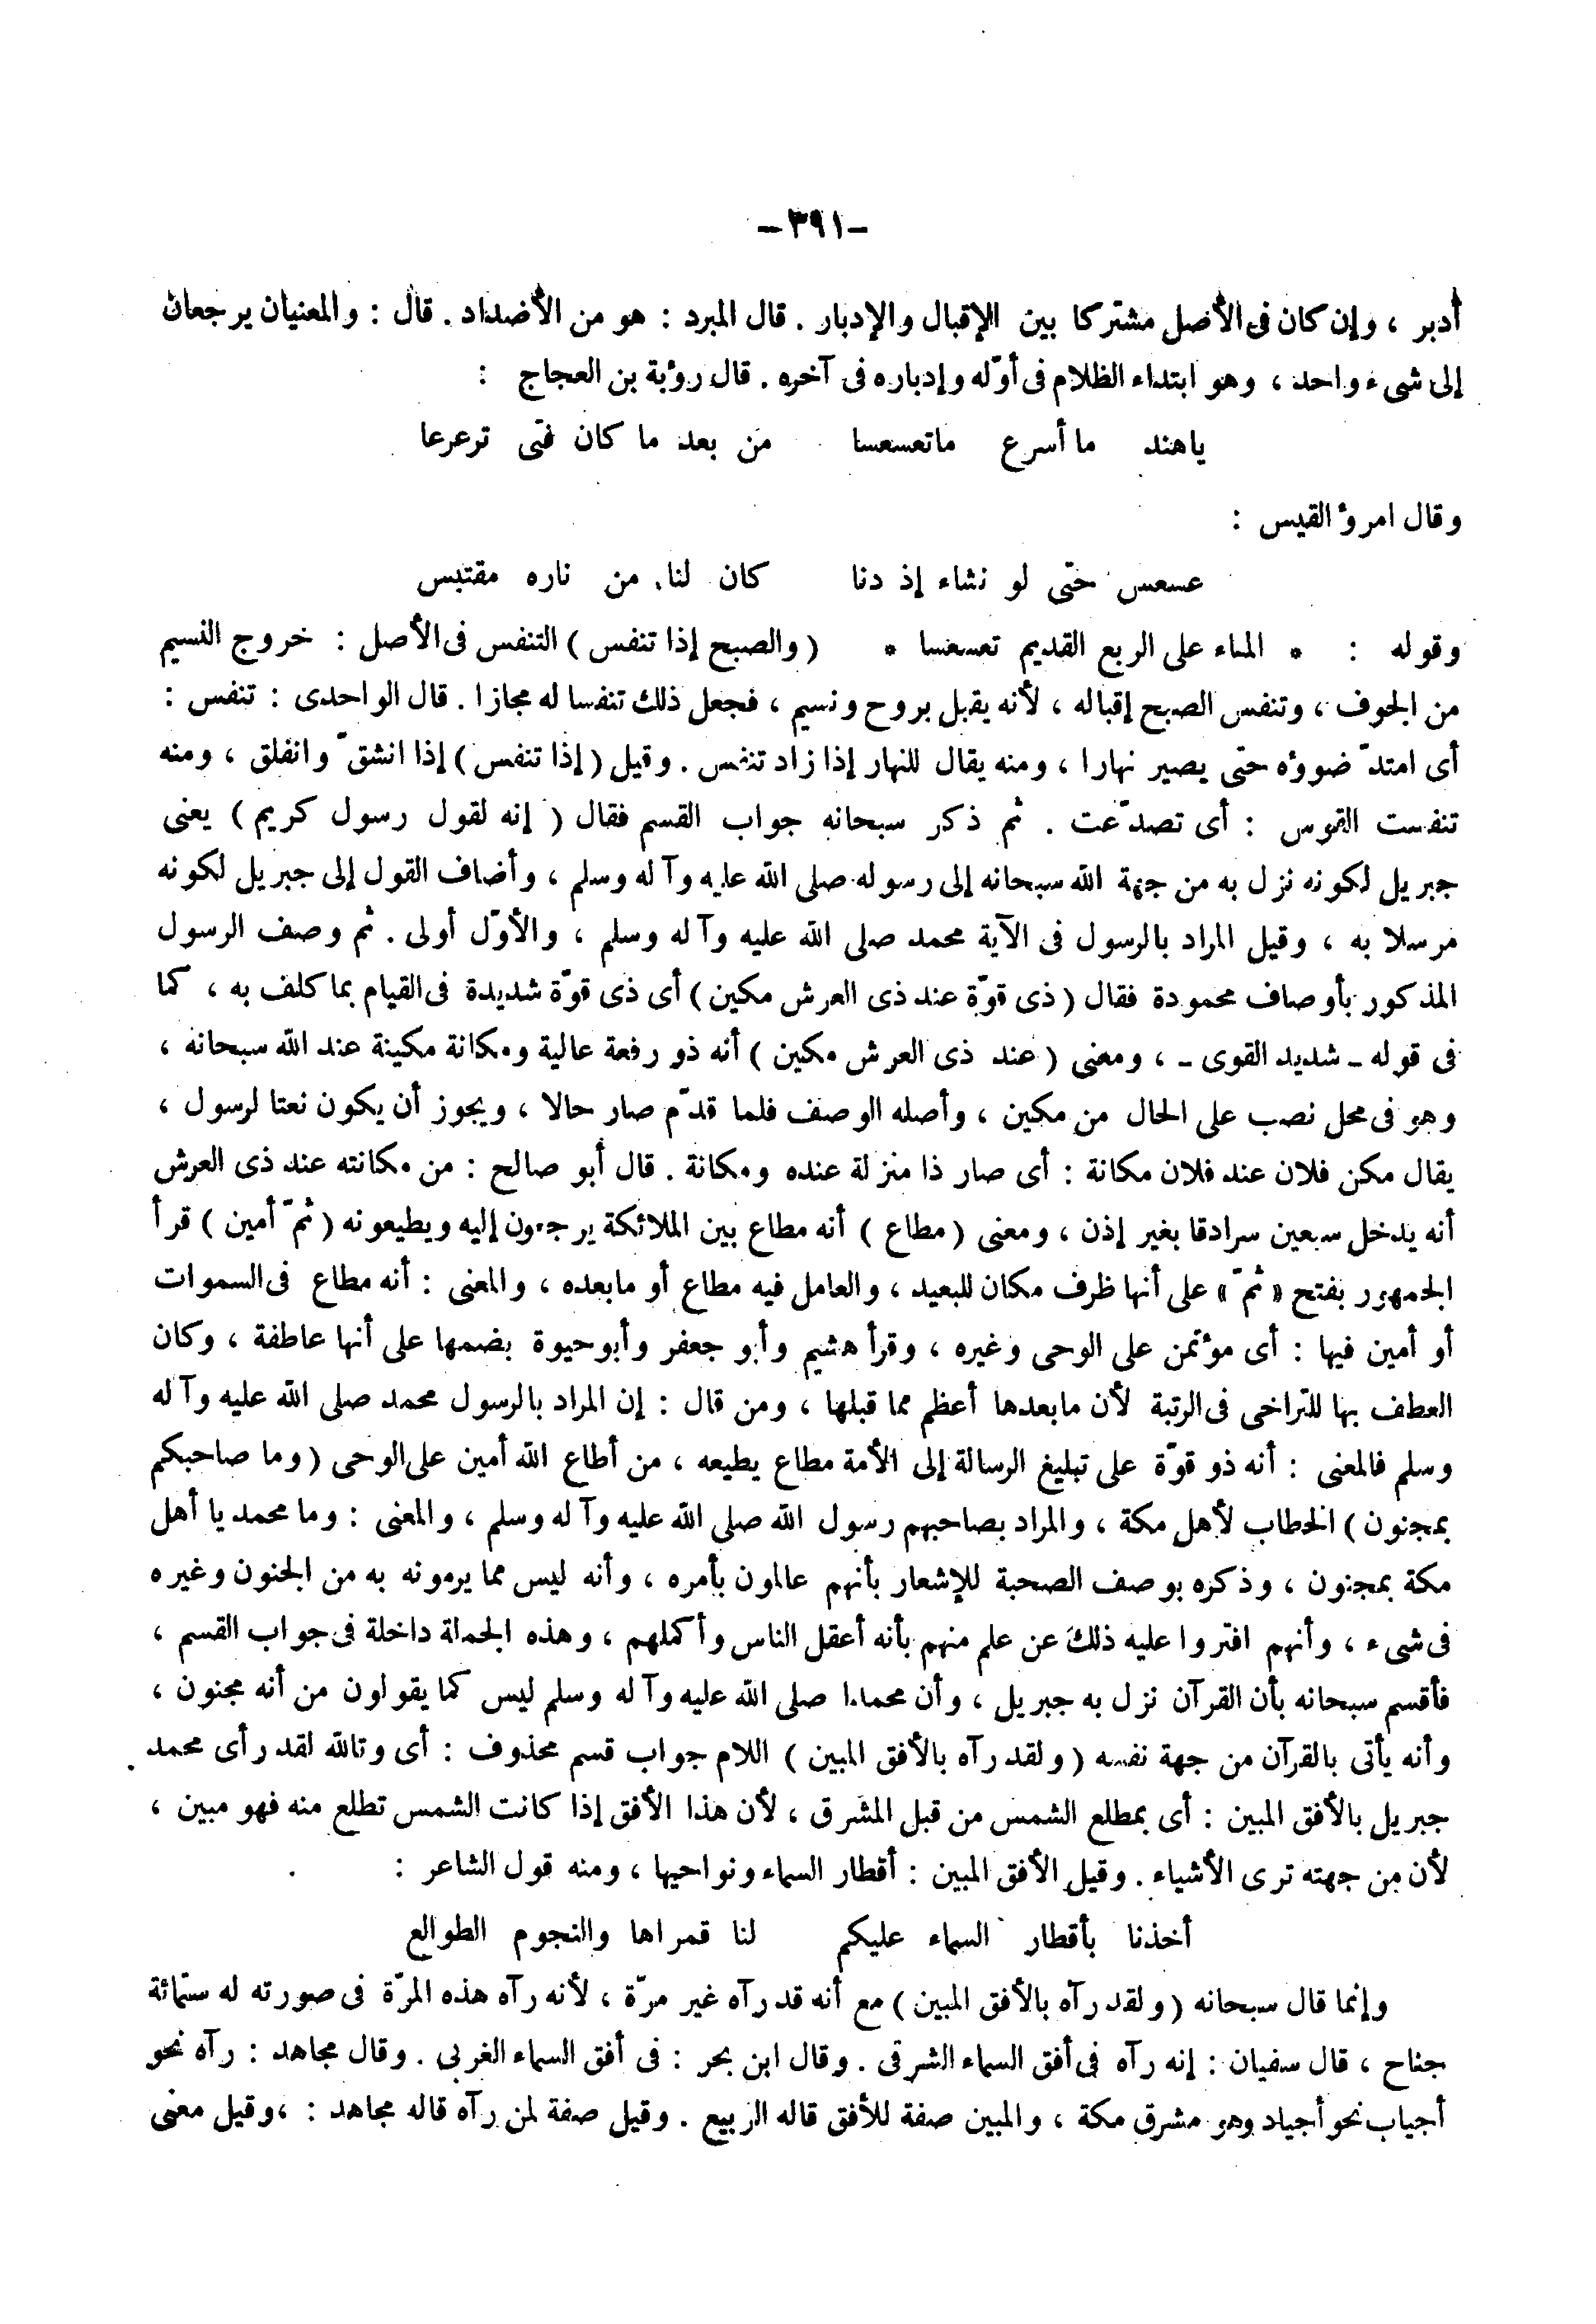 -٣٩١-
أدبر ، وإن كان فى الأصل مشتركا بين الإقبال والإدبار . قال المبرد : هو من الأضداد . قال : والمعنيان يرجعان
إلى شىء واحد ، وهو ابتداء الظلام فى أوّله وإدباره فى آخره . قال رؤبة بن العجاج :
ياهند ما أسرع ماتعسعسا من بعد ما كان فتى ترعرعا
وقال امرؤ القيس :
عسعس حتى لو نشاء إذ دنا كان لنا من ناره مقتبس
وقوله : * الماء على الربع القديم تعسعسا * ( والصبح إذا تنفس ) التنفس فى الأصل : خروج النسيم
من الجوف ، وتنفس الصبح إقباله ، لأنه يقبل بروح ونسيم ، فجعل ذلك تنفسا له مجازا . قال الواحدى : تنفس :
أى امتدّ ضووه حتى يصير نهارا ، ومنه يقال للنهار إذا زاد تنفس . وقيل ( إذا تنفس ) إذا انشقّ وانفلق ، ومنه
تنفست القوس : أى تصدّعت . ثم ذكر سبحانه جواب القسم فقال ( إنه لقول رسول كريم ) يعنى
جبريل لكونه نزل به من جهة الله سبحانه إلى رسوله صلى الله عليه وآله وسلم ، وأضاف القول إلى جبريل لكونه
مرسلا به ، وقيل المراد بالرسول فى الآية محمد صلى الله عليه وآله وسلم ، والأوّل أولى . ثم وصف الرسول
المذكور بأوصاف محمودة فقال ( ذى قوّة عند ذى العرش مكين ) أى ذى قوّة شديدة فى القيام بما كلف به ، كما
فى قوله ـ شديد القوى ـ ، ومعنى ( عند ذى العرش مكين ) أنه ذو رفعة عالية ومكانة مكينة عند الله سبحانه ،
وهو فى محل نصب على الحال من مكين ، وأصله الوصف فلما قدّم صار حالا ، ويجوز أن يكون نعتا لرسول ،
يقال مكن فلان عند فلان مكانة : أى صار ذا منزلة عنده ومكانة . قال أبو صالح : من مكانته عند ذى العرش
أنه يدخل سبعين سرادقا بغير إذن ، ومعنى ( مطاع ) أنه مطاع بين الملائكة يرجعون إليه ويطيعونه ( ثمّ أمين ) قرأ
الجمهور بفتح « ثمّ » على أنها ظرف مكان للبعيد ، والعامل فيه مطاع أو مابعده ، والمعنى : أنه مطاع فى السموات
أو أمين فيها : أى مؤتمن على الوحى وغيره ، وقرأ هشيم وأبو جعفر وأبوحيوة بضمها على أنها عاطفة ، وكان
العطف بها للتراخى فى الرتبة لأن مابعدها أعظم مما قبلها ، ومن قال : إن المراد بالرسول محمد صلى الله عليه وآله
وسلم فالمعنى : أنه ذو قوّة على تبليغ الرسالة إلى الأمة مطاع يطيعه ، من أطاع الله أمين على الوحى ( وما صاحبكم
بمجنون ) الخطاب لأهل مكة ، والمراد بصاحبهم رسول الله صلى الله عليه وآله وسلم ، والمعنى : وما محمد يا أهل
مكة بمجنون ، وذكره بوصف الصحبة للإشعار بأنهم عالمون بأمره ، وأنه ليس مما يرمونه به من الجنون وغيره
فى شىء ، وأنهم افتروا عليه ذلك عن علم منهم بأنه أعقل الناس وأكملهم ، وهذه الجملة داخلة فى جواب القسم ،
فأقسم سبحانه بأن القرآن نزل به جبريل ، وأن محمدا صلى الله عليه وآله وسلم ليس كما يقولون من أنه مجنون ،
وأنه يأتى بالقرآن من جهة نفسه ( ولقد رآه بالأفق المبين ) اللام جواب قسم محذوف : أى وتالله لقد رأى محمد
جبريل بالأفق المبين : أى بمطلع الشمس من قبل المشرق ، لأن هذا الأفق إذا كانت الشمس تطلع منه فهو مبين ،
لأن من جهته ترى الأشياء . وقيل الأفق المبين : أقطار السماء ونواحيها ، ومنه قول الشاعر :
أخذنا بأقطار السماء عليكم لنا قمراها والنجوم الطوالع
وإنما قال سبحانه ( ولقد رآه بالأفق المبين ) مع أنه قد رآه غير مرّة ، لأنه رآه هذه المرّة فى صورته له ستمائة
جناح ، قال سفيان : إنه رآه فى أفق السماء الشرقى . وقال ابن بحر : فى أفق السماء الغربى . وقال مجاهد : رآه نحو
أجياب نحو أجياد وهو مشرق مكة ، والمبين صفة للأفق قاله الربيع . وقيل صفة لمن رآه قاله مجاهد : ،وقيل معنى